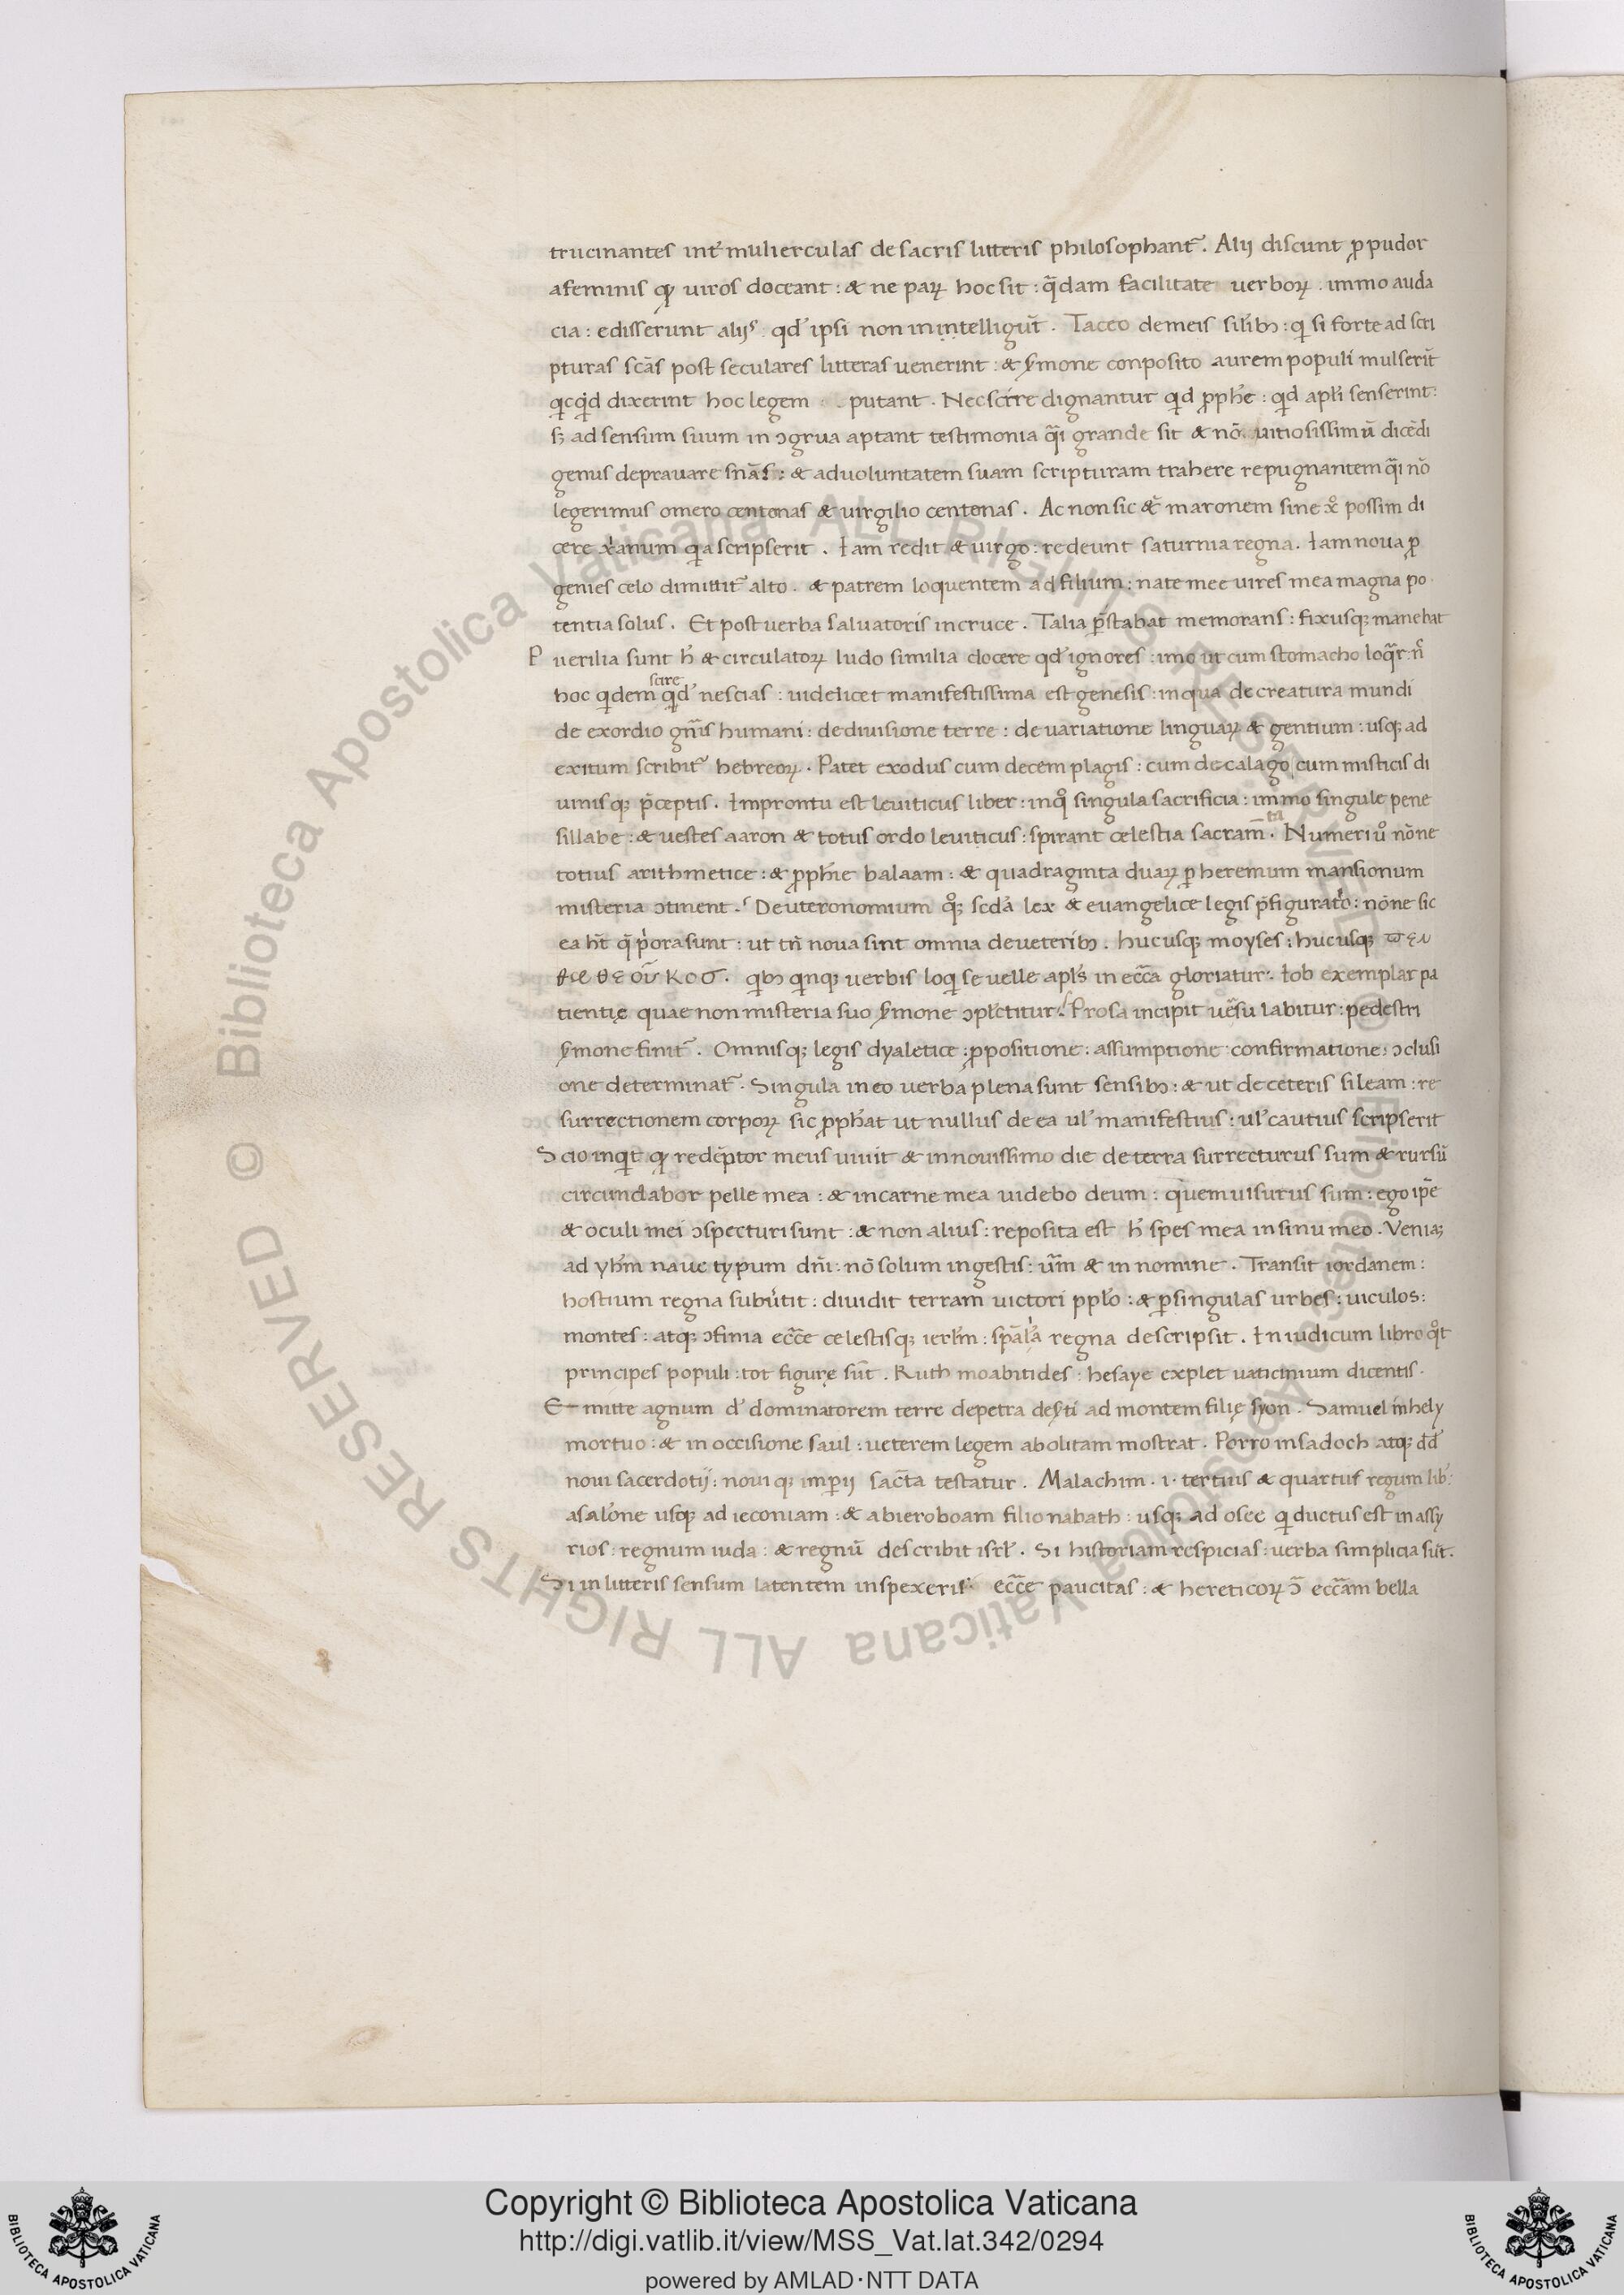 trucinantes int̄ mulierculas de sacris litteris philosophant᷑. Alij discunt ꝓpudor
afeminis ꝙ viros doceant : & ne paꝝ hoc sit : q̄dam facilitate verboꝝ . immo auda
cia : edisserunt alijs qd̓ ipsi non inintelligūt . Taceo demeis sil̓ibꝫ : q̓ si forte ad scri
pturas scās post seculares litteras uenerint : & s̓mone conposito aurem populi mulserūt
q̓cq̓d dixerint hoc legem putant . Nec scire dignantur q̓d ꝓph̄e : q̓d apl̄i senserint :
sꝫ ad sensum suum in ɔgrua aptant testimonia q̄i grande sit & nō uitiosissimū dicēdi
genus deprauare sn̄as : & aduoluntatem suam scripturam trahere repugnantem q̄i nō
legerimus omero centonas & virgilio centonas . Ac non sic &̄ maronem sine xo̓ possim di
cere xp̄ianum q̓a scripserit . Iam redit & uirgo : redeunt saturnia regna . Iam noua ꝓ
genies celo dimittit᷑ alto . & patrem loquentem ad filium : nate mee uires mea magna po
tentia solus . Et post uerba saluatoris in cruce . Talia p̄stabat memorans : fixusqꝫ manebat
P uerilia sunt h̓ & circulatoꝝ ludo similia docere qd̓ ignores : imo ut cum stomacho loq̄r : n̄
scire
hoc q̓dem q̓d nescias : uidelicet manifestissima est genesis : inqua de creatura mundi
de exordio gn̄is humani : dediuisione terre : de uariatione linguaꝝ & gentium : usqꝫ ad
exitum scribit᷑ hebreoꝝ . Patet exodus cum decem plagis : cum decalago cum misticis di
uinisqꝫ p̄ceptis . Impromtu est leuiticus liber : inqo̓ singula sacrificia : immo singule pene
ta
sillabe : & uestes aaron & totus ordo leuiticus : spirant celestia sacram̄ . Numeri uo̓ nōne
totius arithmetice : & ꝓph̄ie balaam : & quadraginta duaꝝ ꝑ heremum mansionum
misteria ɔtinent . Deuteronomium qo̓qꝫ scd̓a lex & euangelice legis p̄figurat̓o : nōne sic
ea h̄t q̄ p̓ora sunt : ut tn̄ noua sint omnia deueteribꝫ . hucusqꝫ moyses : hucusqꝫ
q̓bꝫ q̓nqꝫ verbis loq̓ se uelle apl̄s in ecc̄a gloriatur . Iob exemplar pa
tientię quae non misteria suo s̓mone ɔplectitur . Prosa incipit uēsu labitur : pedestri
s̓mone finit᷑ . Omnisqꝫ legis dyaletice : ꝓpositione : assumptione confirmatione : ɔclusi
one determinat᷑ . Singula in eo uerba plena sunt sensibꝫ : & ut de ceteris sileam : re
surrectionem corpoꝝ sic ꝓph̄at ut nullus de ea ul̓ manifestius : ul̓ cautius scripserit
S cio inq̓t ꝙ redēptor meus uiuit & innouissimo die de terra surrecturus sum & rursū
circundabor pelle mea : & incarne mea uidebo deum : quem uisurus sum : ego ip̄e
& oculi mei ɔspecturi sunt : & non alius : reposita est h̓ spes mea in sinu meo . Veniaꝫ
ad yh̄m naue typum dn̄i : nō solum ingestis : uē̄m & in nomine . Transit iordanem :
hostium regna subūtit : diuidit terram uictori ppl̓o : & ꝑsingulas urbes : uiculos :
montes : atqꝫ ɔfinia ecc̄e celestisqꝫ ierl̄m : spāl̓a regna descripsit . In iudicum libro qo̓t
principes populi : tot figurę sūt . Ruth moabitides : hesaye explet uaticinium dicentis .
E mitte agnum d̓ dominatorem terre depetra des̓ti ad montem filię syon . Samuel inhely
mortuo : & in occisione saul : ueterem legem abolitam mostrat . Porro insadoch atqꝫ dd̄
noui sacerdotij : noui qꝫ imꝑij sac̄ta testatur . Malachim . i . tertius & quartus regum lib̓ :
asal̓one usqꝫ ad ieconiam : & abieroboam filio nabath : usqꝫ ad osee q̓ ductus est in assy
rios : regnum iuda : & regnū describit isrl̄ . Si historiam respicias : uerba simplicia sūt .
Si in litteris sensum latentem inspexeris : ecc̄e paucitas : & hereticoꝝ ɔ̄ ecc̄am bella
© Biblioteca Apostolica Vaticana ALL RIGHTS RESERVED © Biblioteca Apostolica Vaticana ALL RIGHTS RESERVED
Copyright © Biblioteca Apostolica Vaticana
http://digi.vatlib.it/view/MSS_Vat.lat.342/0294
powered by AMLAD·NTT DATA
BIBLIOTECA APOSTOLICA VATICANA
BIBLIOTECA APOSTOLICA VATICANA